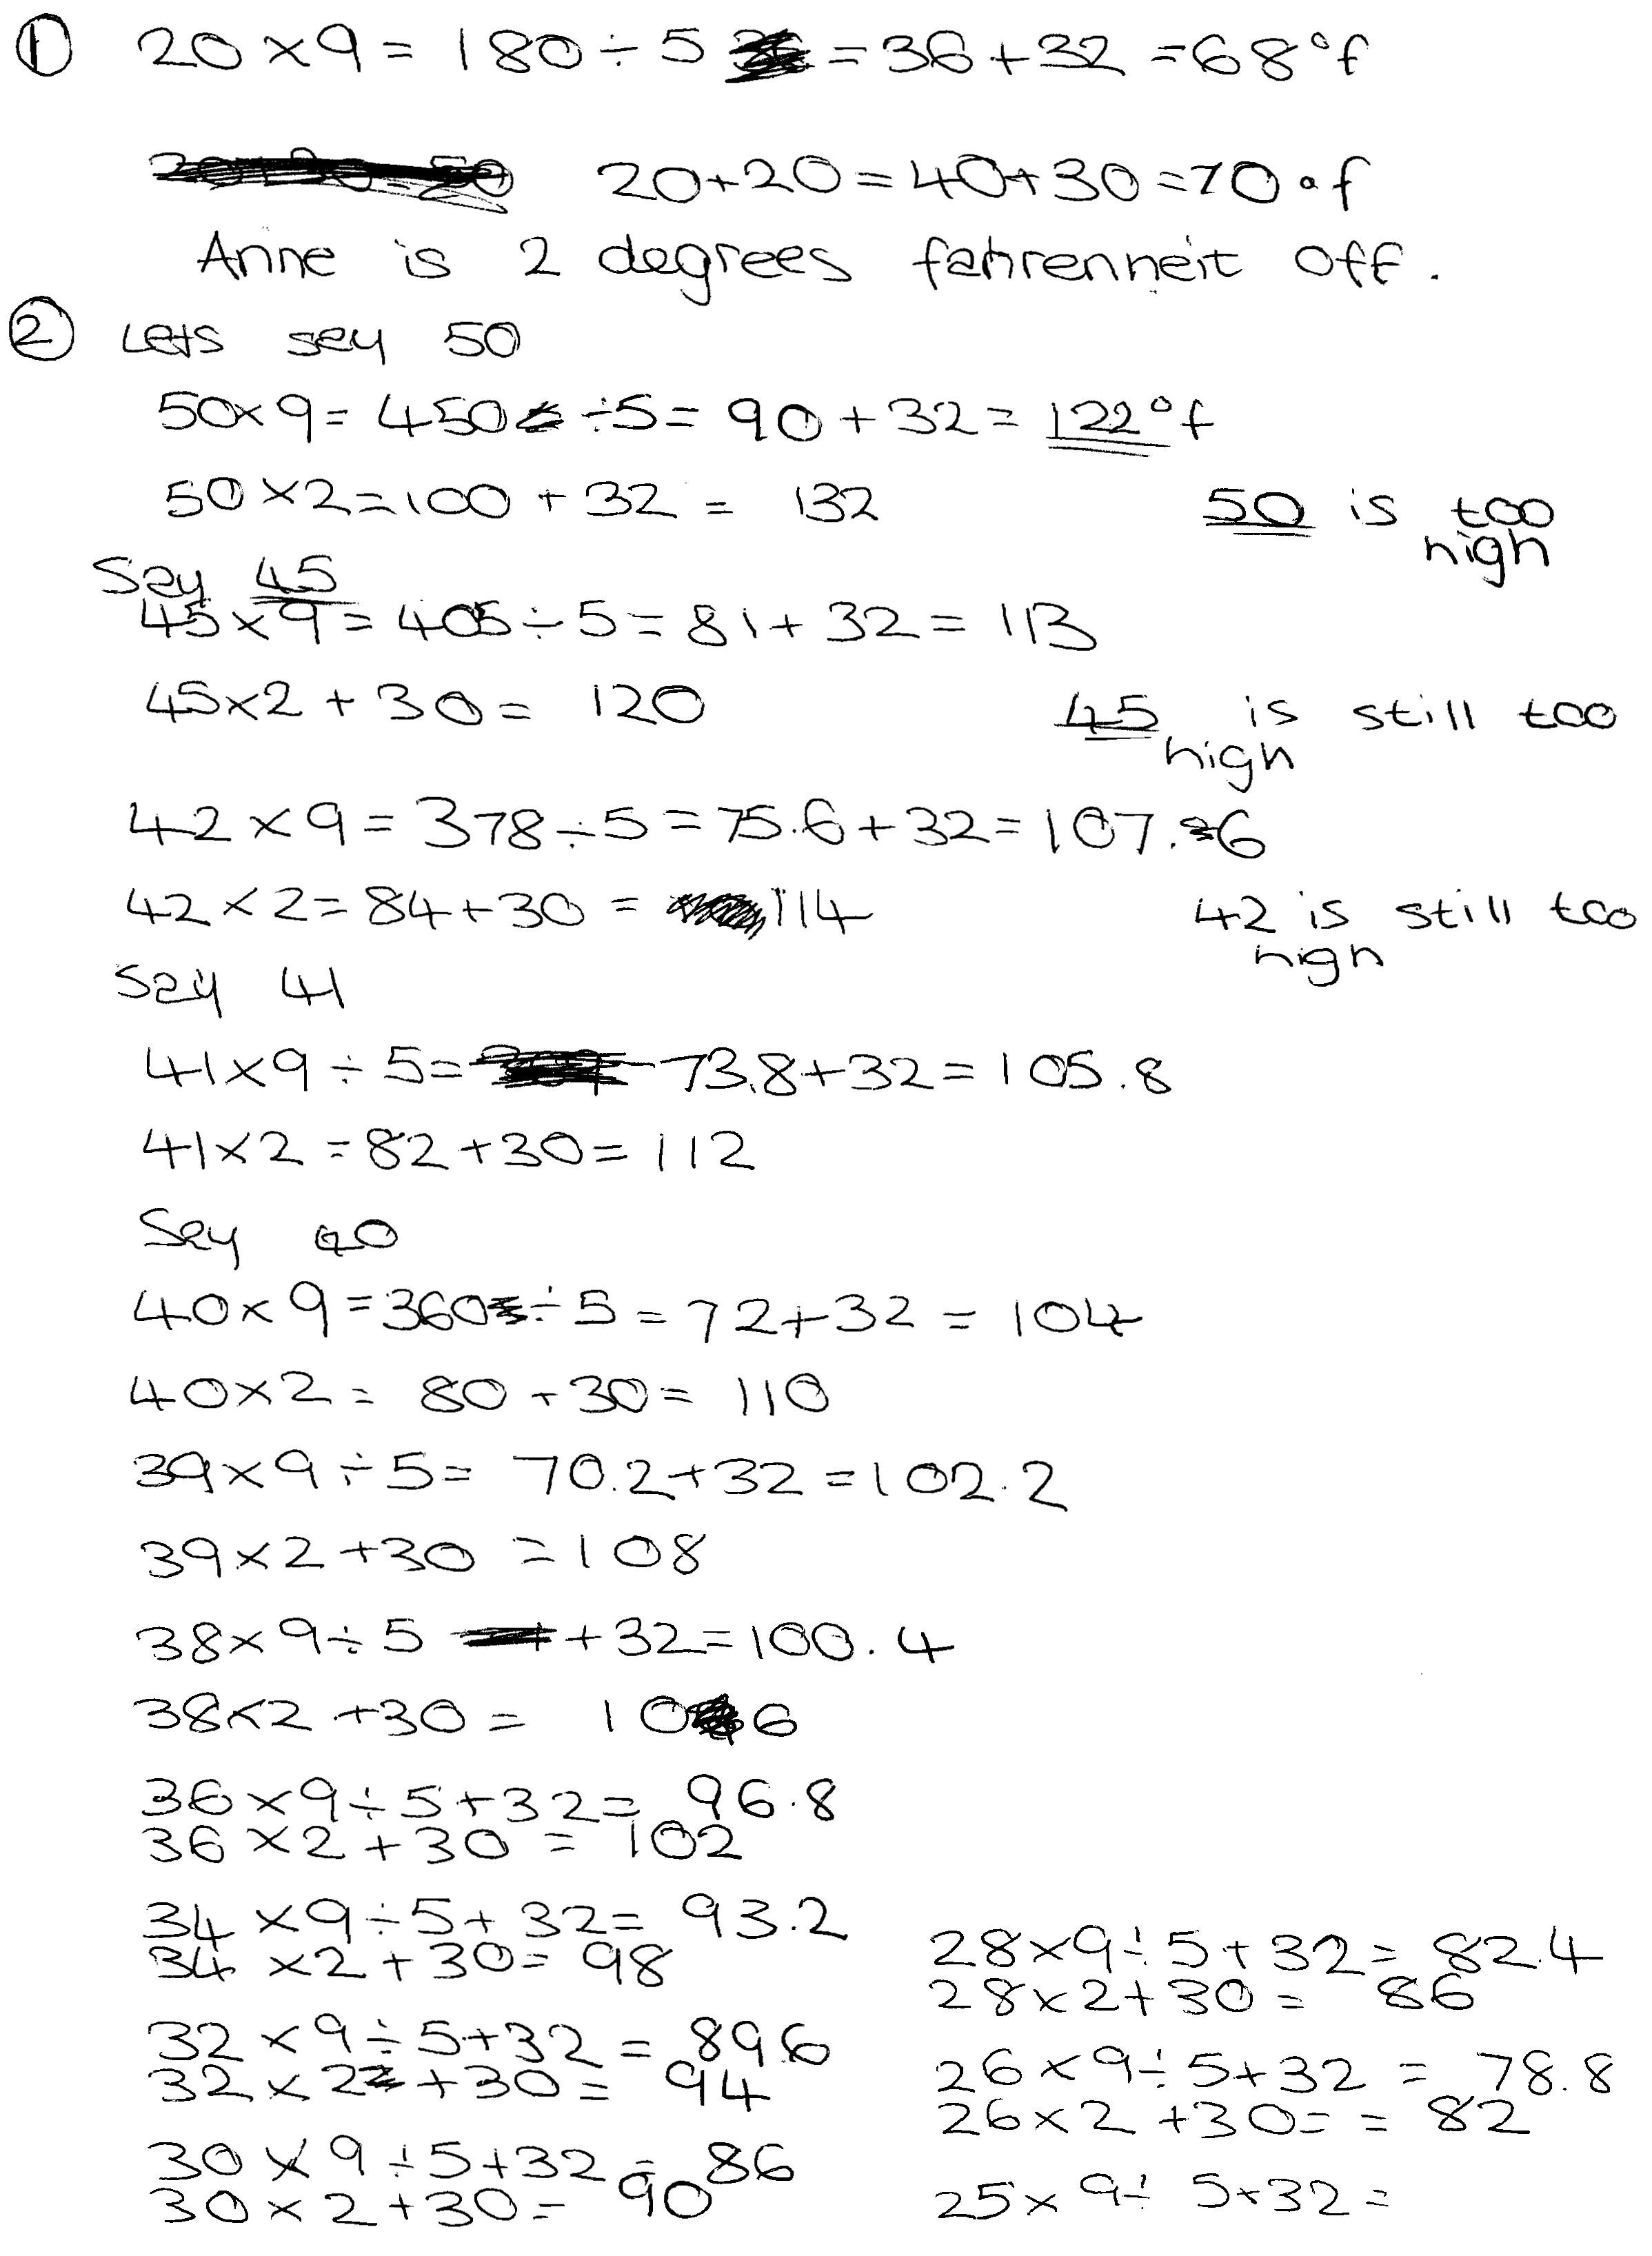 ① 20 × 9 = 180 ÷ 5 = 36 + 32 = 68°f
20+20 = 40+30 = 70°f
Anne is 2 degrees fahrenheit off.
② Lets say 50
50×9 = 450 ÷5 = 90 + 32 = 122°f
50 × 2 = 100 + 32 = 132
50 is too
high
Say 45
45 × 9 = 405 ÷ 5 = 81 + 32 = 113
45×2 + 30 = 120
45 is still too
high
42 × 9 = 378 ÷ 5 = 75.6 + 32 = 107.6
42 × 2 = 84 + 30 = 114
42 is still too
high
Say 41
41×9 ÷ 5 = 73.8 + 32 = 105.8
41×2 = 82 + 30 = 112
Say 40
40 × 9 = 360 ÷ 5 = 72 + 32 = 104
40×2 = 80 + 30 = 110
39 × 9 ÷ 5 = 70.2 + 32 = 102.2
39 × 2 + 30 = 108
38 × 9 ÷ 5 + 32 = 100.4
38×2 + 30 = 106
36 × 9 ÷ 5 + 32 = 96.8
36 × 2 + 30 = 102
34 × 9 ÷ 5 + 32 = 93.2
34 × 2 + 30 = 98
32 × 9 ÷ 5 + 32 = 89.6
32 × 2 + 30 = 94
30 × 9 ÷ 5 + 32 = 86
30 × 2 + 30 = 90
28 × 9 ÷ 5 + 32 = 82.4
28 × 2 + 30 = 86
26 × 9 ÷ 5 + 32 = 78.8
26 × 2 + 30 = = 82
25 × 9 ÷ 5 + 32 =